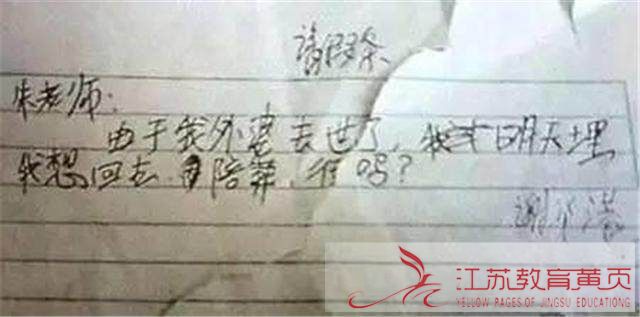 请假条
朱老师:
由于我外婆去世了,我才明天埋
我想回去陪葬,行吗?
江苏教育黄页
YELLOW PAGES OF JINGSU EDUCATIONG